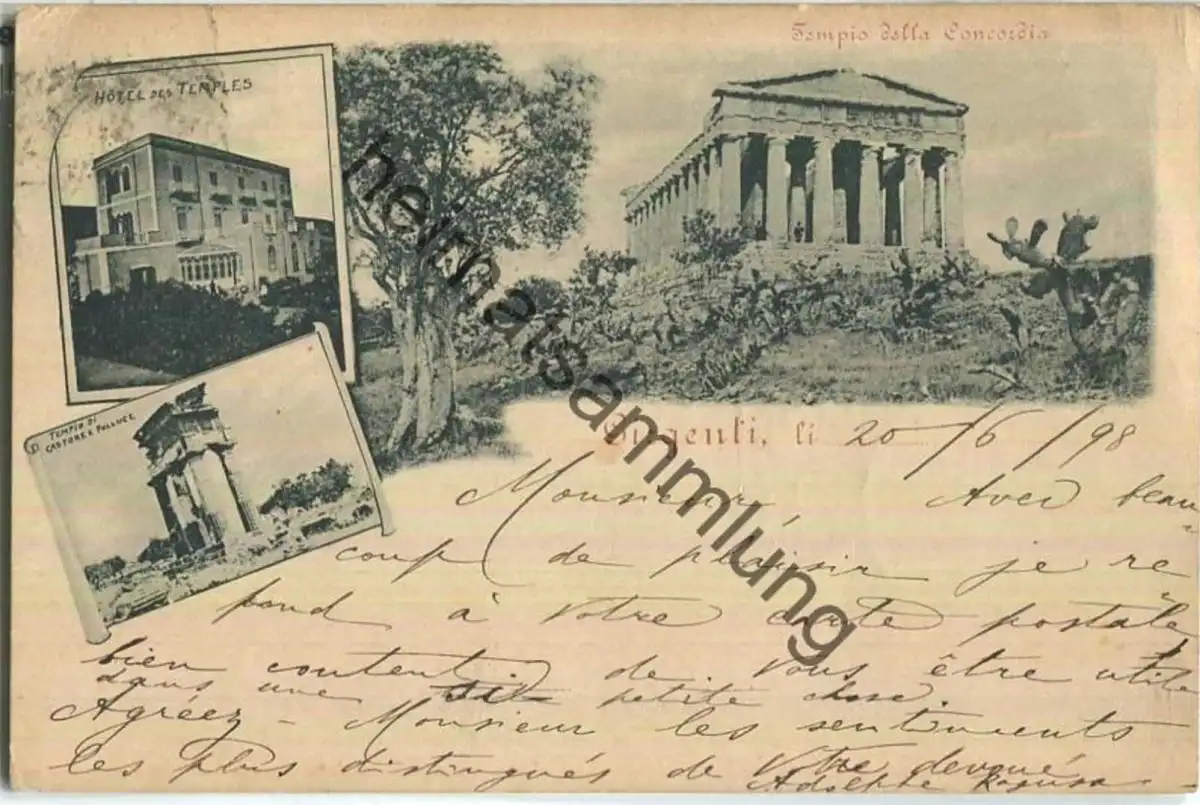 Tempio della Concordia
HÔTEL DES TEMPLES
TEMPIO DI
CASTORE E POLLUCE
Girgenti, li 20/6/98
Monsieur, Avec beau
coup de plaisir je re
pond à Votre carte postale
bien content de vous être utile
dans une si petite chose.
Agréez - Monsieur les sentiments
les plus distingués de Votre devoué
Adolphe Ragusa
heimatsammlung